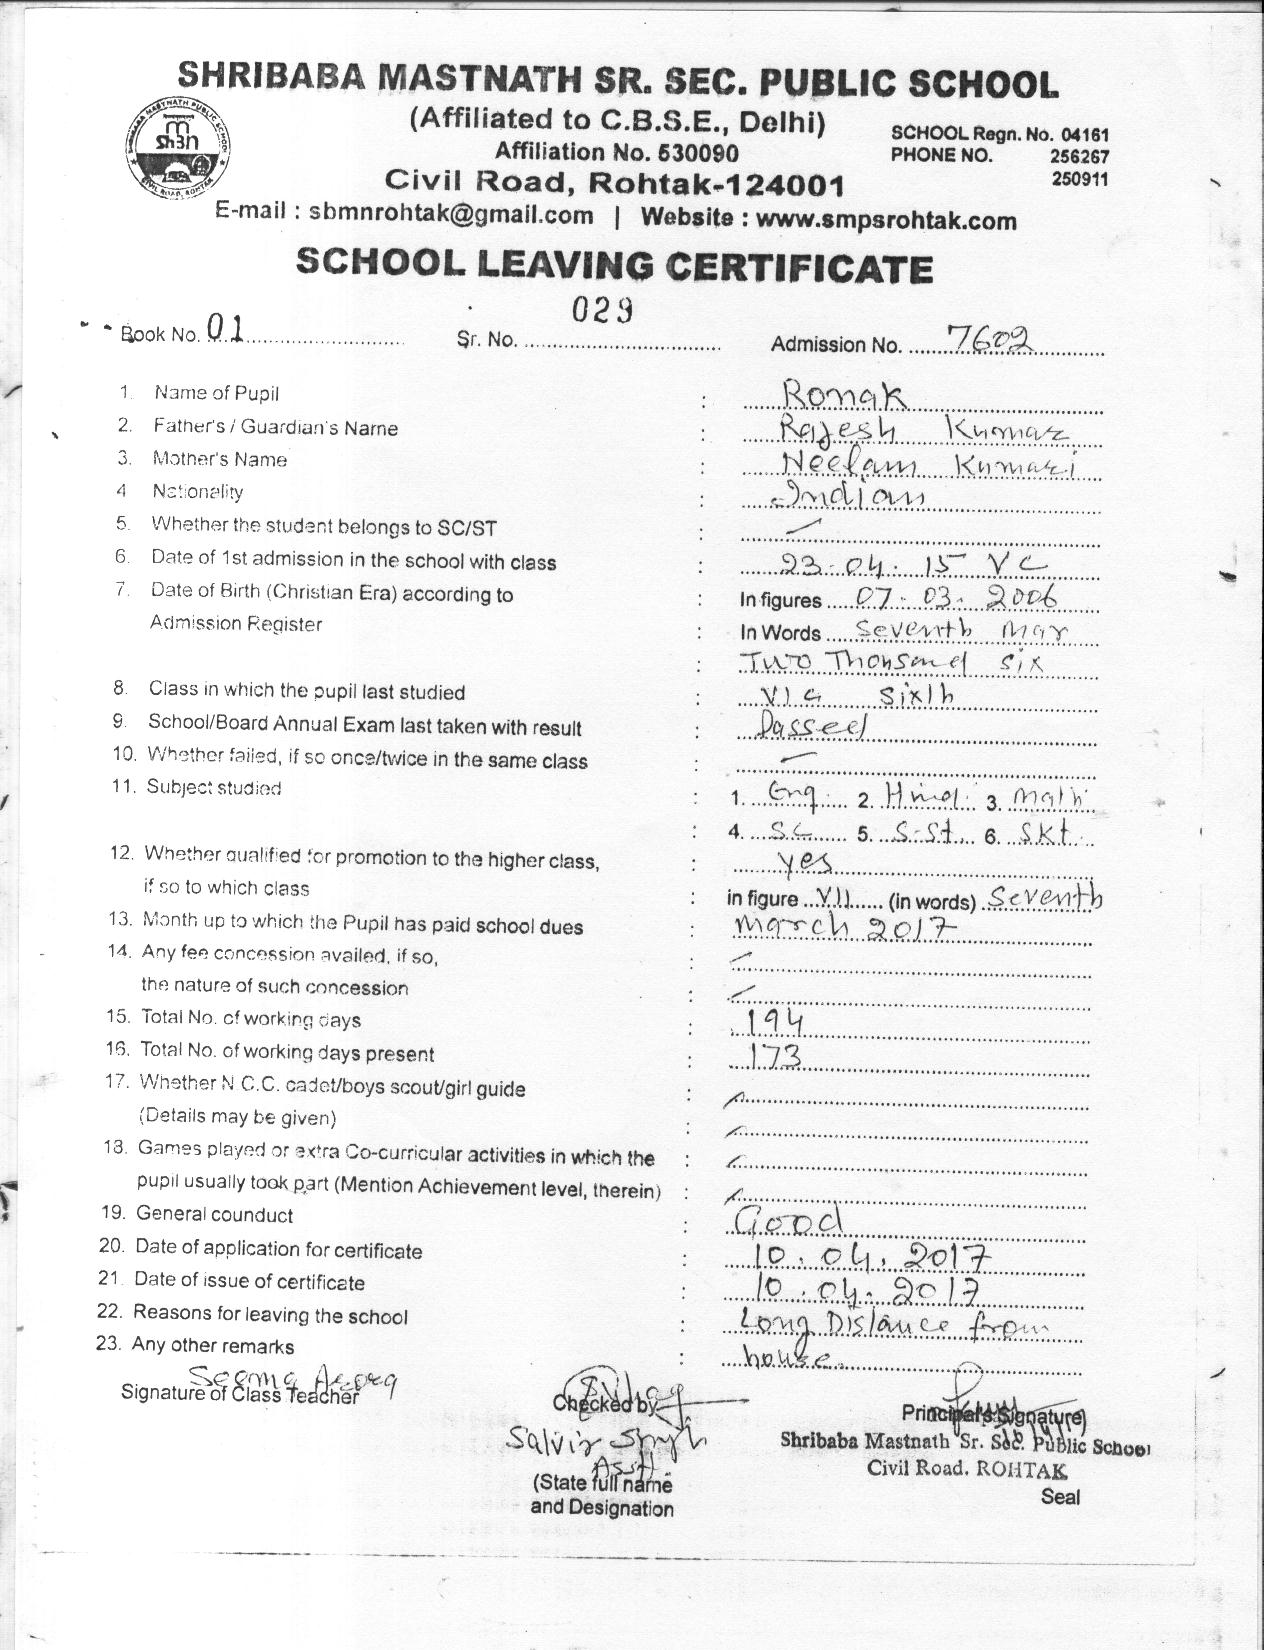 SHRIBABA MASTNATH SR. SEC. PUBLIC SCHOOL
(Affiliated to C.B.S.E., Delhi)
Affiliation No. 530090
Civil Road, Rohtak-124001
SCHOOL Regn. No. 04161
PHONE NO. 256267
250911
E-mail : sbmnrohtak@gmail.com | Website : www.smpsrohtak.com
SCHOOL LEAVING CERTIFICATE
Book No. 01 Sr. No. 029 Admission No. 7602
1. Name of Pupil : Ronak
2. Father's / Guardian's Name : Rajesh Kumar
3. Mother's Name : Neelam Kumari
4 Nationality : Indian
5. Whether the student belongs to SC/ST : —
6. Date of 1st admission in the school with class : 23.04.15 V C
7. Date of Birth (Christian Era) according to : In figures 07.03.2006
Admission Register : In Words Seventh Mar
: Two Thousand Six
8. Class in which the pupil last studied : VI G Sixth
9. School/Board Annual Exam last taken with result : Passed
10. Whether failed, if so once/twice in the same class : —
11. Subject studied : 1. Eng. 2. Hindi 3. Math
: 4. SC 5. S.St. 6. SKt.
12. Whether qualified for promotion to the higher class, : Yes
if so to which class : in figure VII (in words) Seventh
13. Month up to which the Pupil has paid school dues : March 2017
14. Any fee concession availed, if so, : —
the nature of such concession : —
15. Total No. of working days : 194
16. Total No. of working days present : 173
17. Whether N.C.C. cadet/boys scout/girl guide : —
(Details may be given) : —
18. Games played or extra Co-curricular activities in which the : —
pupil usually took part (Mention Achievement level, therein) : —
19. General counduct : Good
20. Date of application for certificate : 10.04.2017
21. Date of issue of certificate : 10.04.2017
22. Reasons for leaving the school : Long Distance from
23. Any other remarks : house.
Seema
Signature of Class Teacher
Checked by
Asst.
(State full name
and Designation
Principal's Signature)
Shribaba Mastnath Sr. Sec. Public School
Civil Road. ROHTAK
Seal